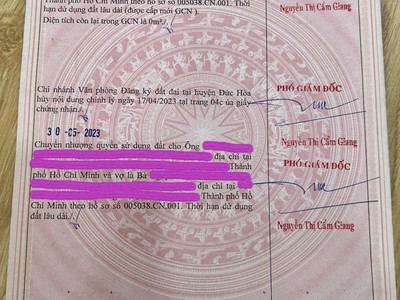 Thành phố Hồ Chí Minh theo hồ sơ số 005038.CN.001. Thời hạn
hạn sử dụng đất lâu dài (được cấp mới GCN ).
Diện tích còn lại trong GCN là 0m².
Nguyễn Thị Cẩm Giang
Chi nhánh Văn phòng Đăng ký đất đai tại huyện Đức Hòa
hủy nội dung chỉnh lý ngày 17/04/2023 tại trang 04c ủa giấy
chứng nhận.
PHÓ GIÁM ĐỐC
30-05-2023
Nguyễn Thị Cẩm Giang
Chuyển nhượng quyền sử dụng đất cho Ông
địa chỉ tại
Thành
phố Hồ Chí Minh và vợ là Bà
địa chỉ tại
Thành phố Hồ
Chí Minh theo hồ sơ số 005038.CN.001. Thời hạn sử dụng
đất lâu dài.
PHÓ GIÁM ĐỐC
Nguyễn Thị Cẩm Giang